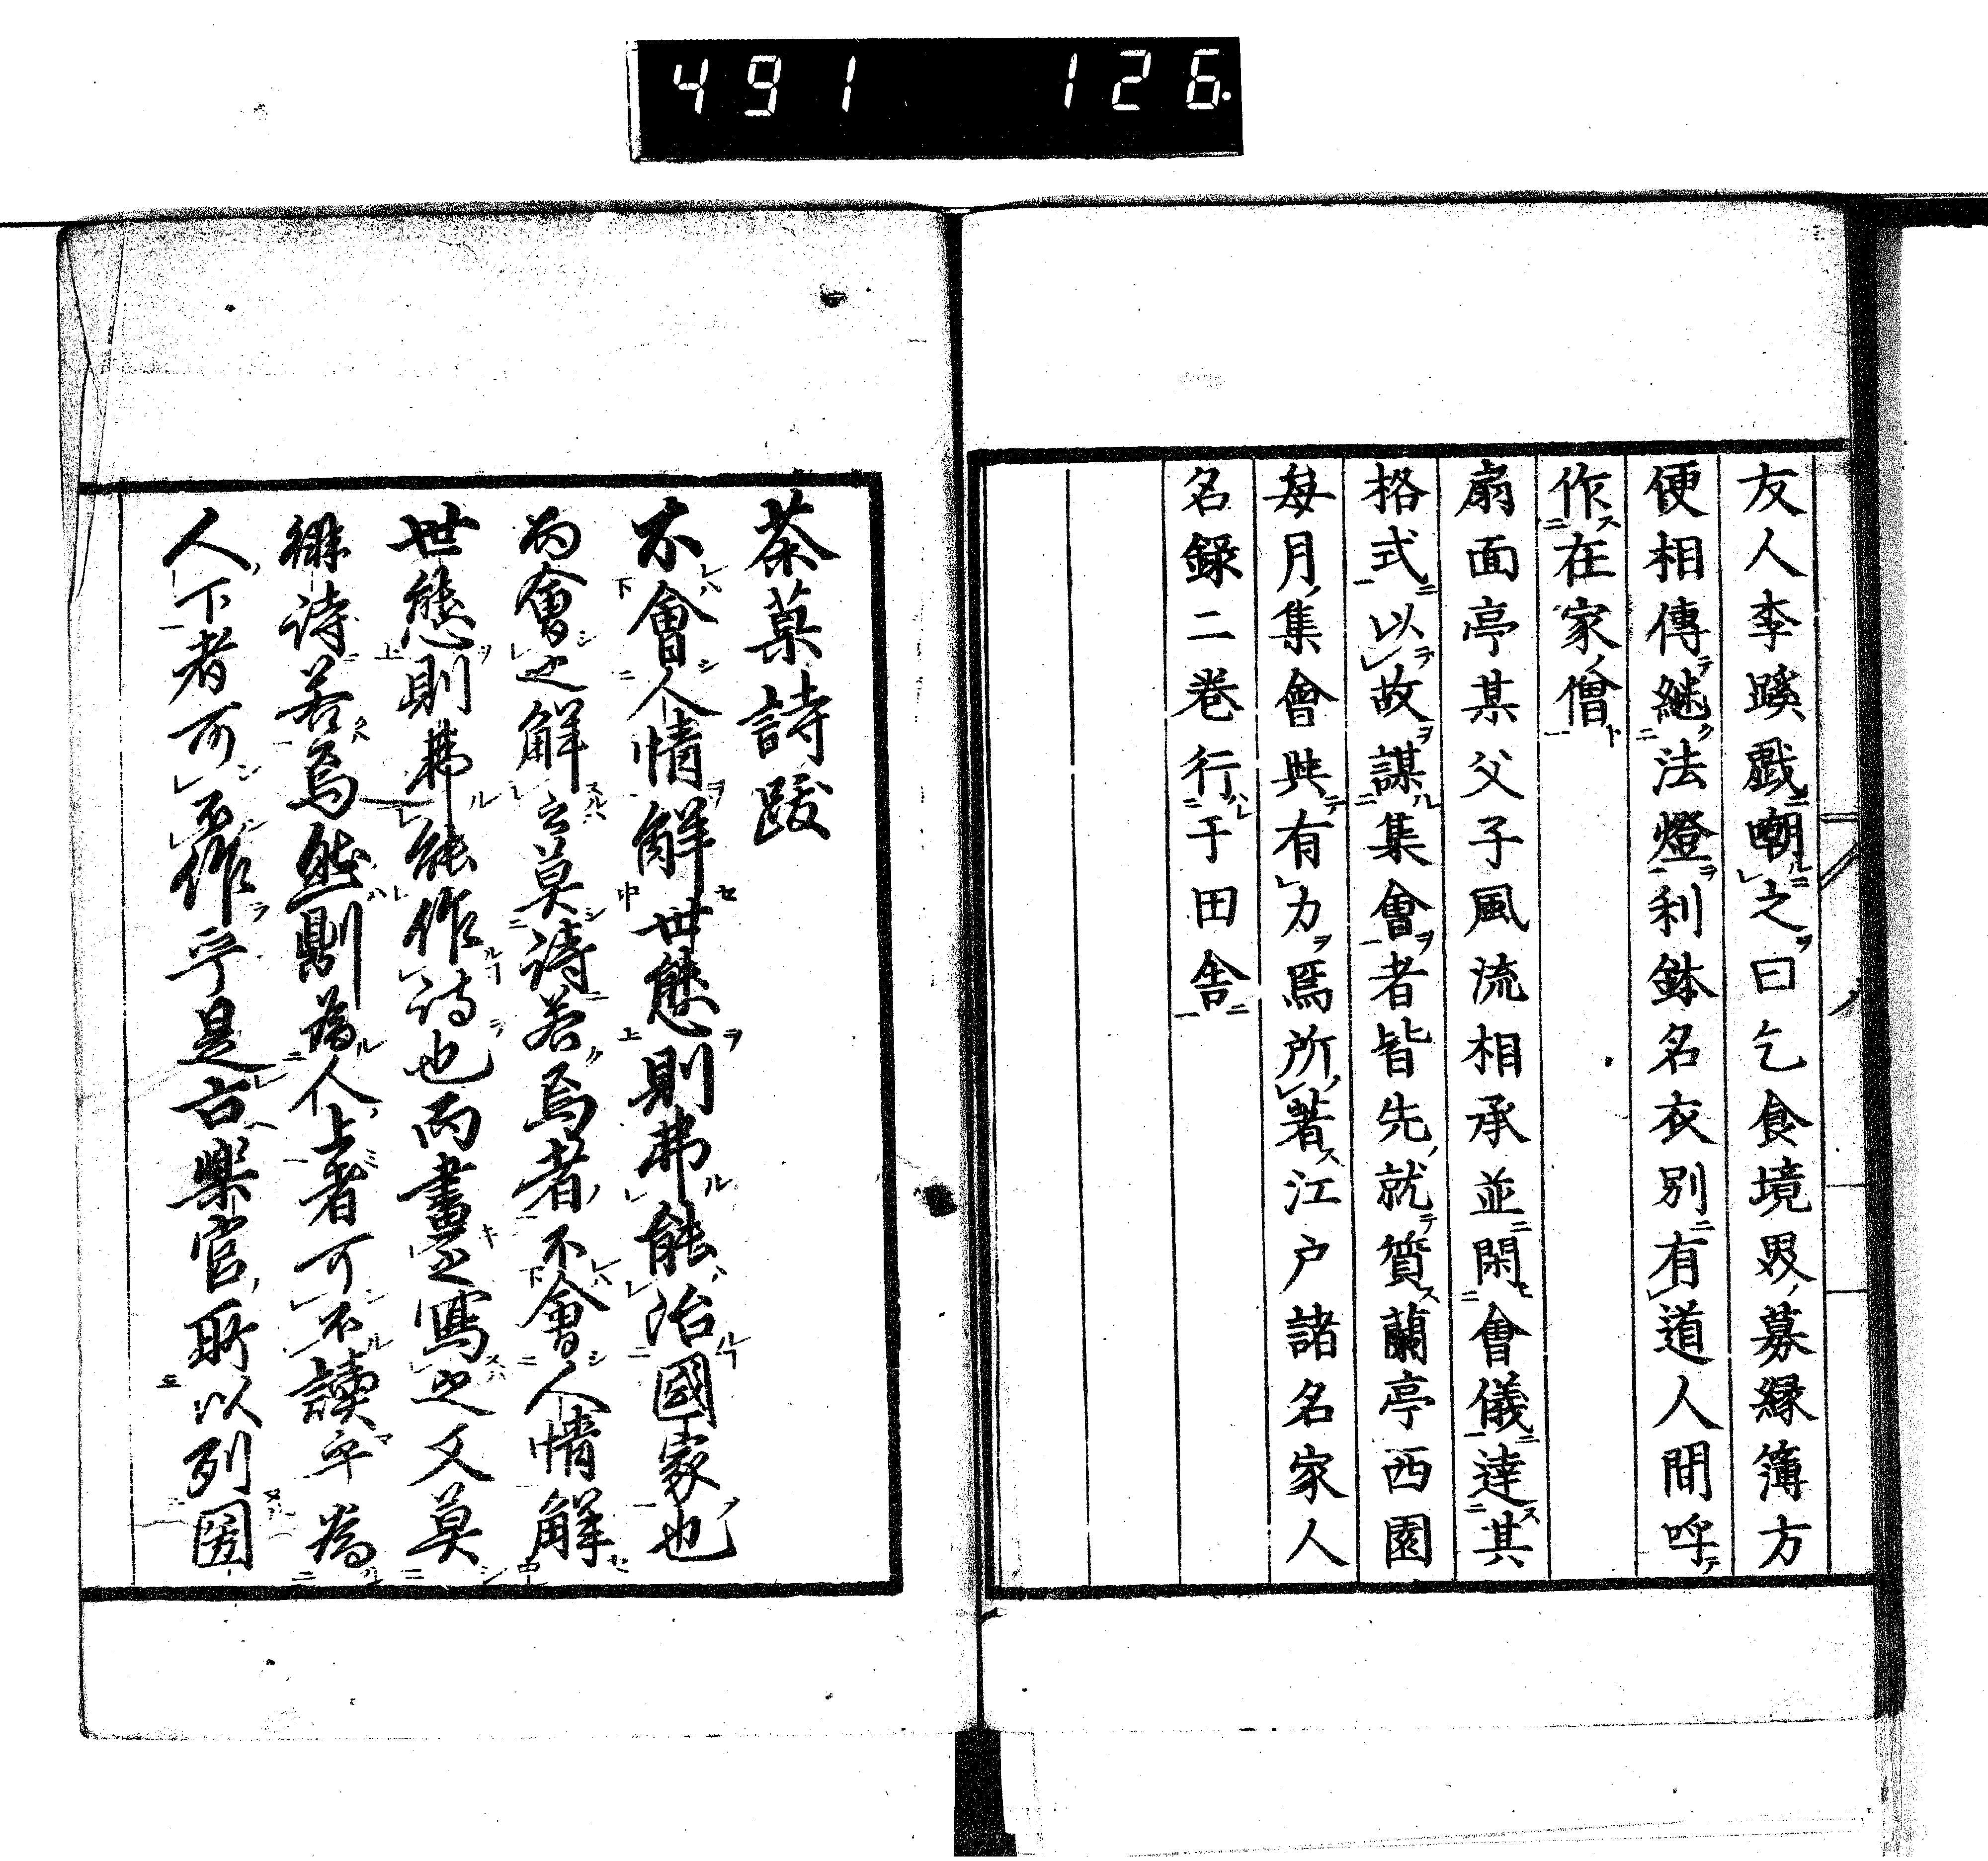 491 126
友人李蹊戲嘲之曰乞食境界募緣簿方
便相傳継法燈利鉢名衣別有道人間呼
作在家僧
扇面亭某父子風流相承並閑會儀達其
格式以故謀集會者皆先就質蘭亭西園
每月集會與有力焉所著江戶諸名家人
名錄二卷行于田舍
茶菓詩跋
不會人情解世態則弗能治國家也
而會之解之莫詩若焉者不會人情解
世態則弗能作詩也而畫之寫之又莫
詩若焉然則為人上者可不讀乎為
人下者可不作乎是古樂官所以列國